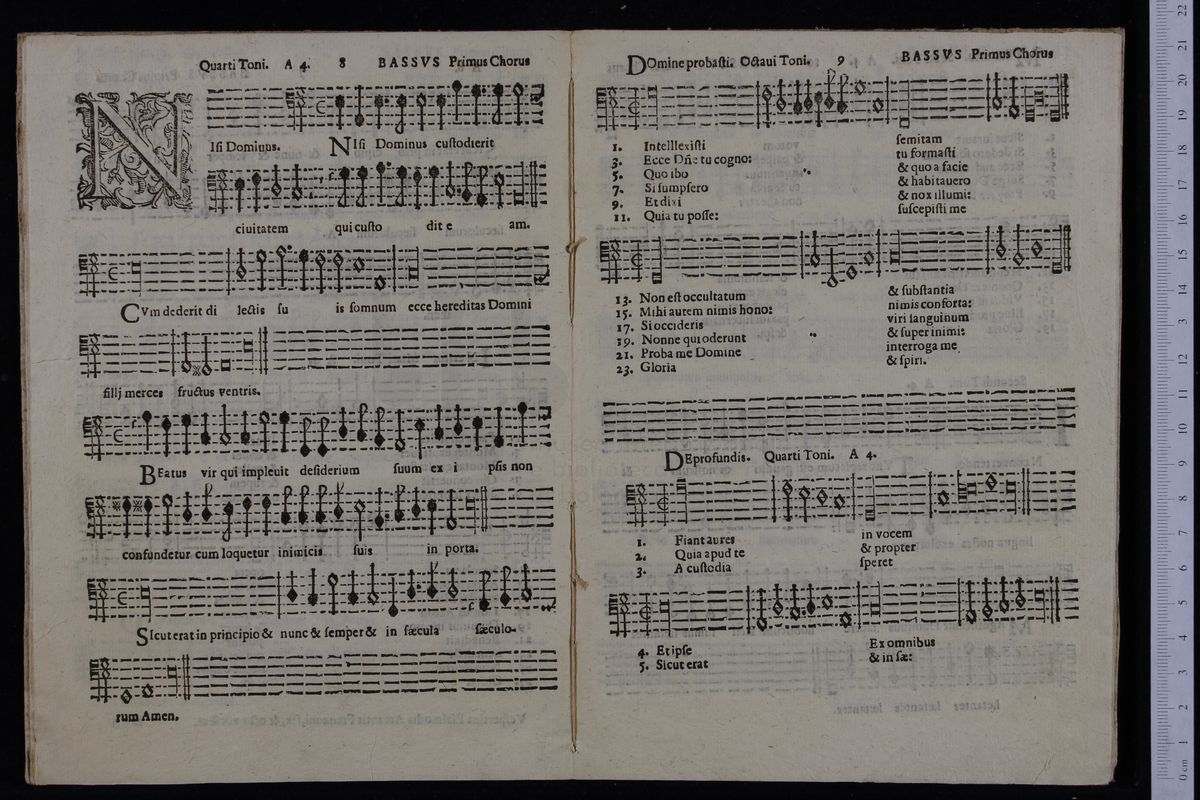 Quarti Toni. A 4. 8 BASSVS Primus Chorus
NIsi Dominus. NIsi Dominus custodierit
ciuitatem qui custo dit e am.
CVm dederit di lectis su is somnum ecce hereditas Domini
fillj merces fructus ventris.
BEatus vir qui impleuit desiderium suum ex i psis non
confundetur cum loquetur inimicis suis in porta.
Sicut erat in principio & nunc & semper & in sæcula sæculo-
rum Amen.
DOmine probasti. Octaui Toni. 9 BASSVS Primus Chorus
1. Intelllexisti semitam
3. Ecce Dñe tu cogno: tu formasti
5. Quo ibo & quo a facie
7. Si sumpsero & habitauero
9. Et dixi & nox illumi:
11. Quia tu posse: suscepisti me
13. Non est occultatum & substantia
15. Mihi autem nimis hono: nimis conforta:
17. Si occideris viri sanguinum
19. Nonne qui oderunt & super inimi:
21. Proba me Domine interroga me
23. Gloria & spiri.
DEprofundis. Quarti Toni. A 4.
1. Fiant aures in vocem
2. Quia apud te & propter
3. A custodia speret
4. Et ipse Ex omnibus
5. Sicut erat & in sæ: